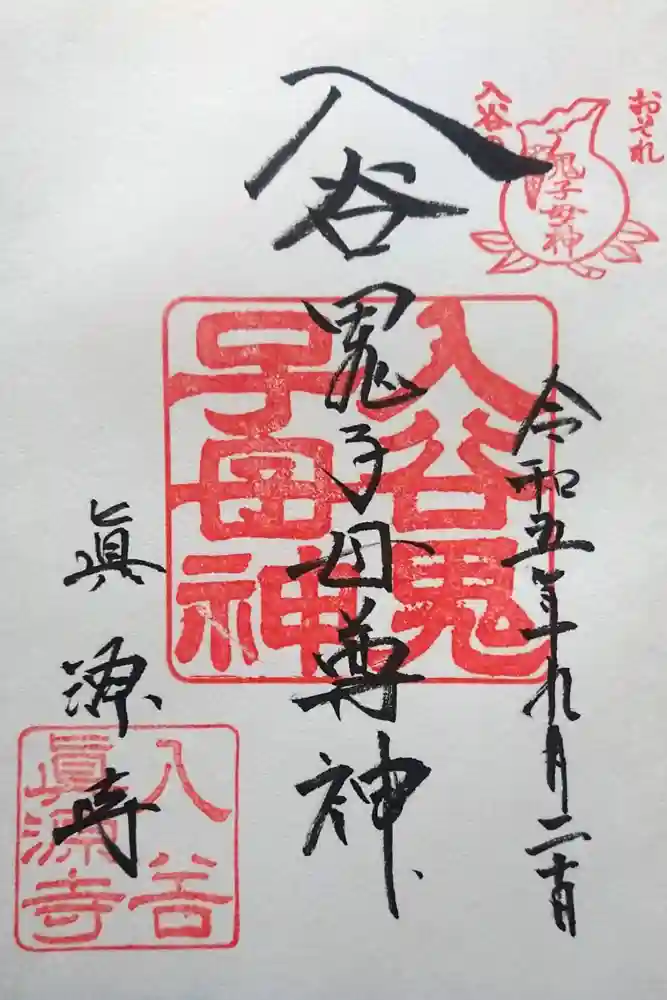 おそれ
入谷の
鬼子母神
令和五年九月二十日
入谷鬼子母尊神
入谷鬼
子母神
眞源寺
入谷
眞源寺